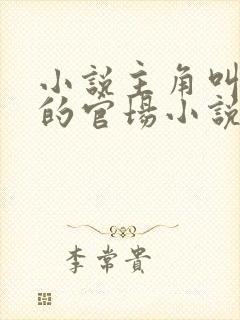 小説主角叫
的官場小説
李常貴